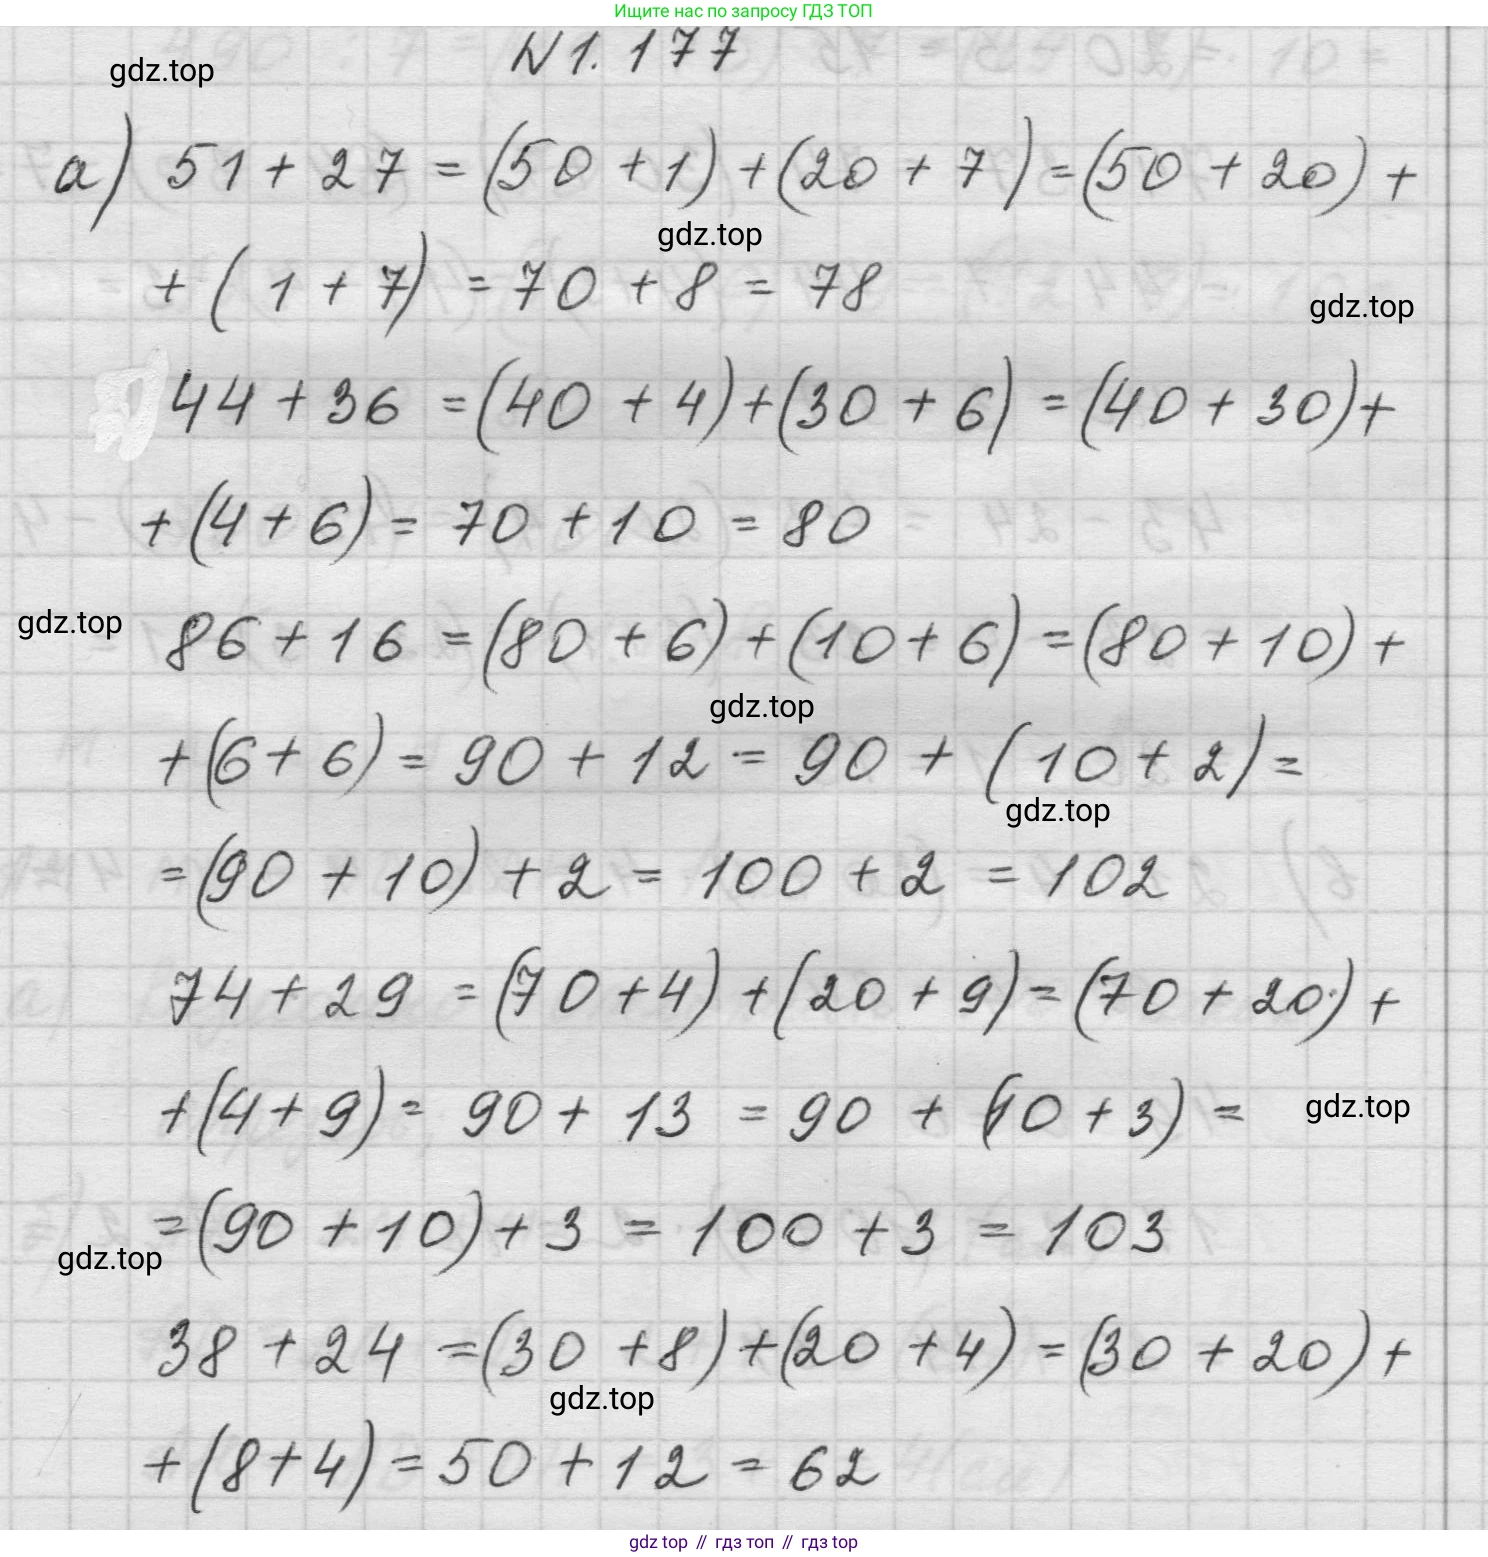 Ищите нас по запросу ГДЗ ТОП
N 1. 177
gdz.top
а) 51 + 27 = (50 + 1) + (20 + 7) = (50 + 20) +
gdz.top
+ (1 + 7) = 70 + 8 = 78
gdz.top
44 + 36 = (40 + 4) + (30 + 6) = (40 + 30) +
+ (4 + 6) = 70 + 10 = 80
gdz.top
86 + 16 = (80 + 6) + (10 + 6) = (80 + 10) +
gdz.top
+ (6 + 6) = 90 + 12 = 90 + (10 + 2) =
gdz.top
= (90 + 10) + 2 = 100 + 2 = 102
74 + 29 = (70 + 4) + (20 + 9) = (70 + 20) +
+ (4 + 9) = 90 + 13 = 90 + (10 + 3) =
gdz.top
= (90 + 10) + 3 = 100 + 3 = 103
gdz.top
38 + 24 = (30 + 8) + (20 + 4) = (30 + 20) +
gdz.top
+ (8 + 4) = 50 + 12 = 62
gdz top // гдз топ // гдз top